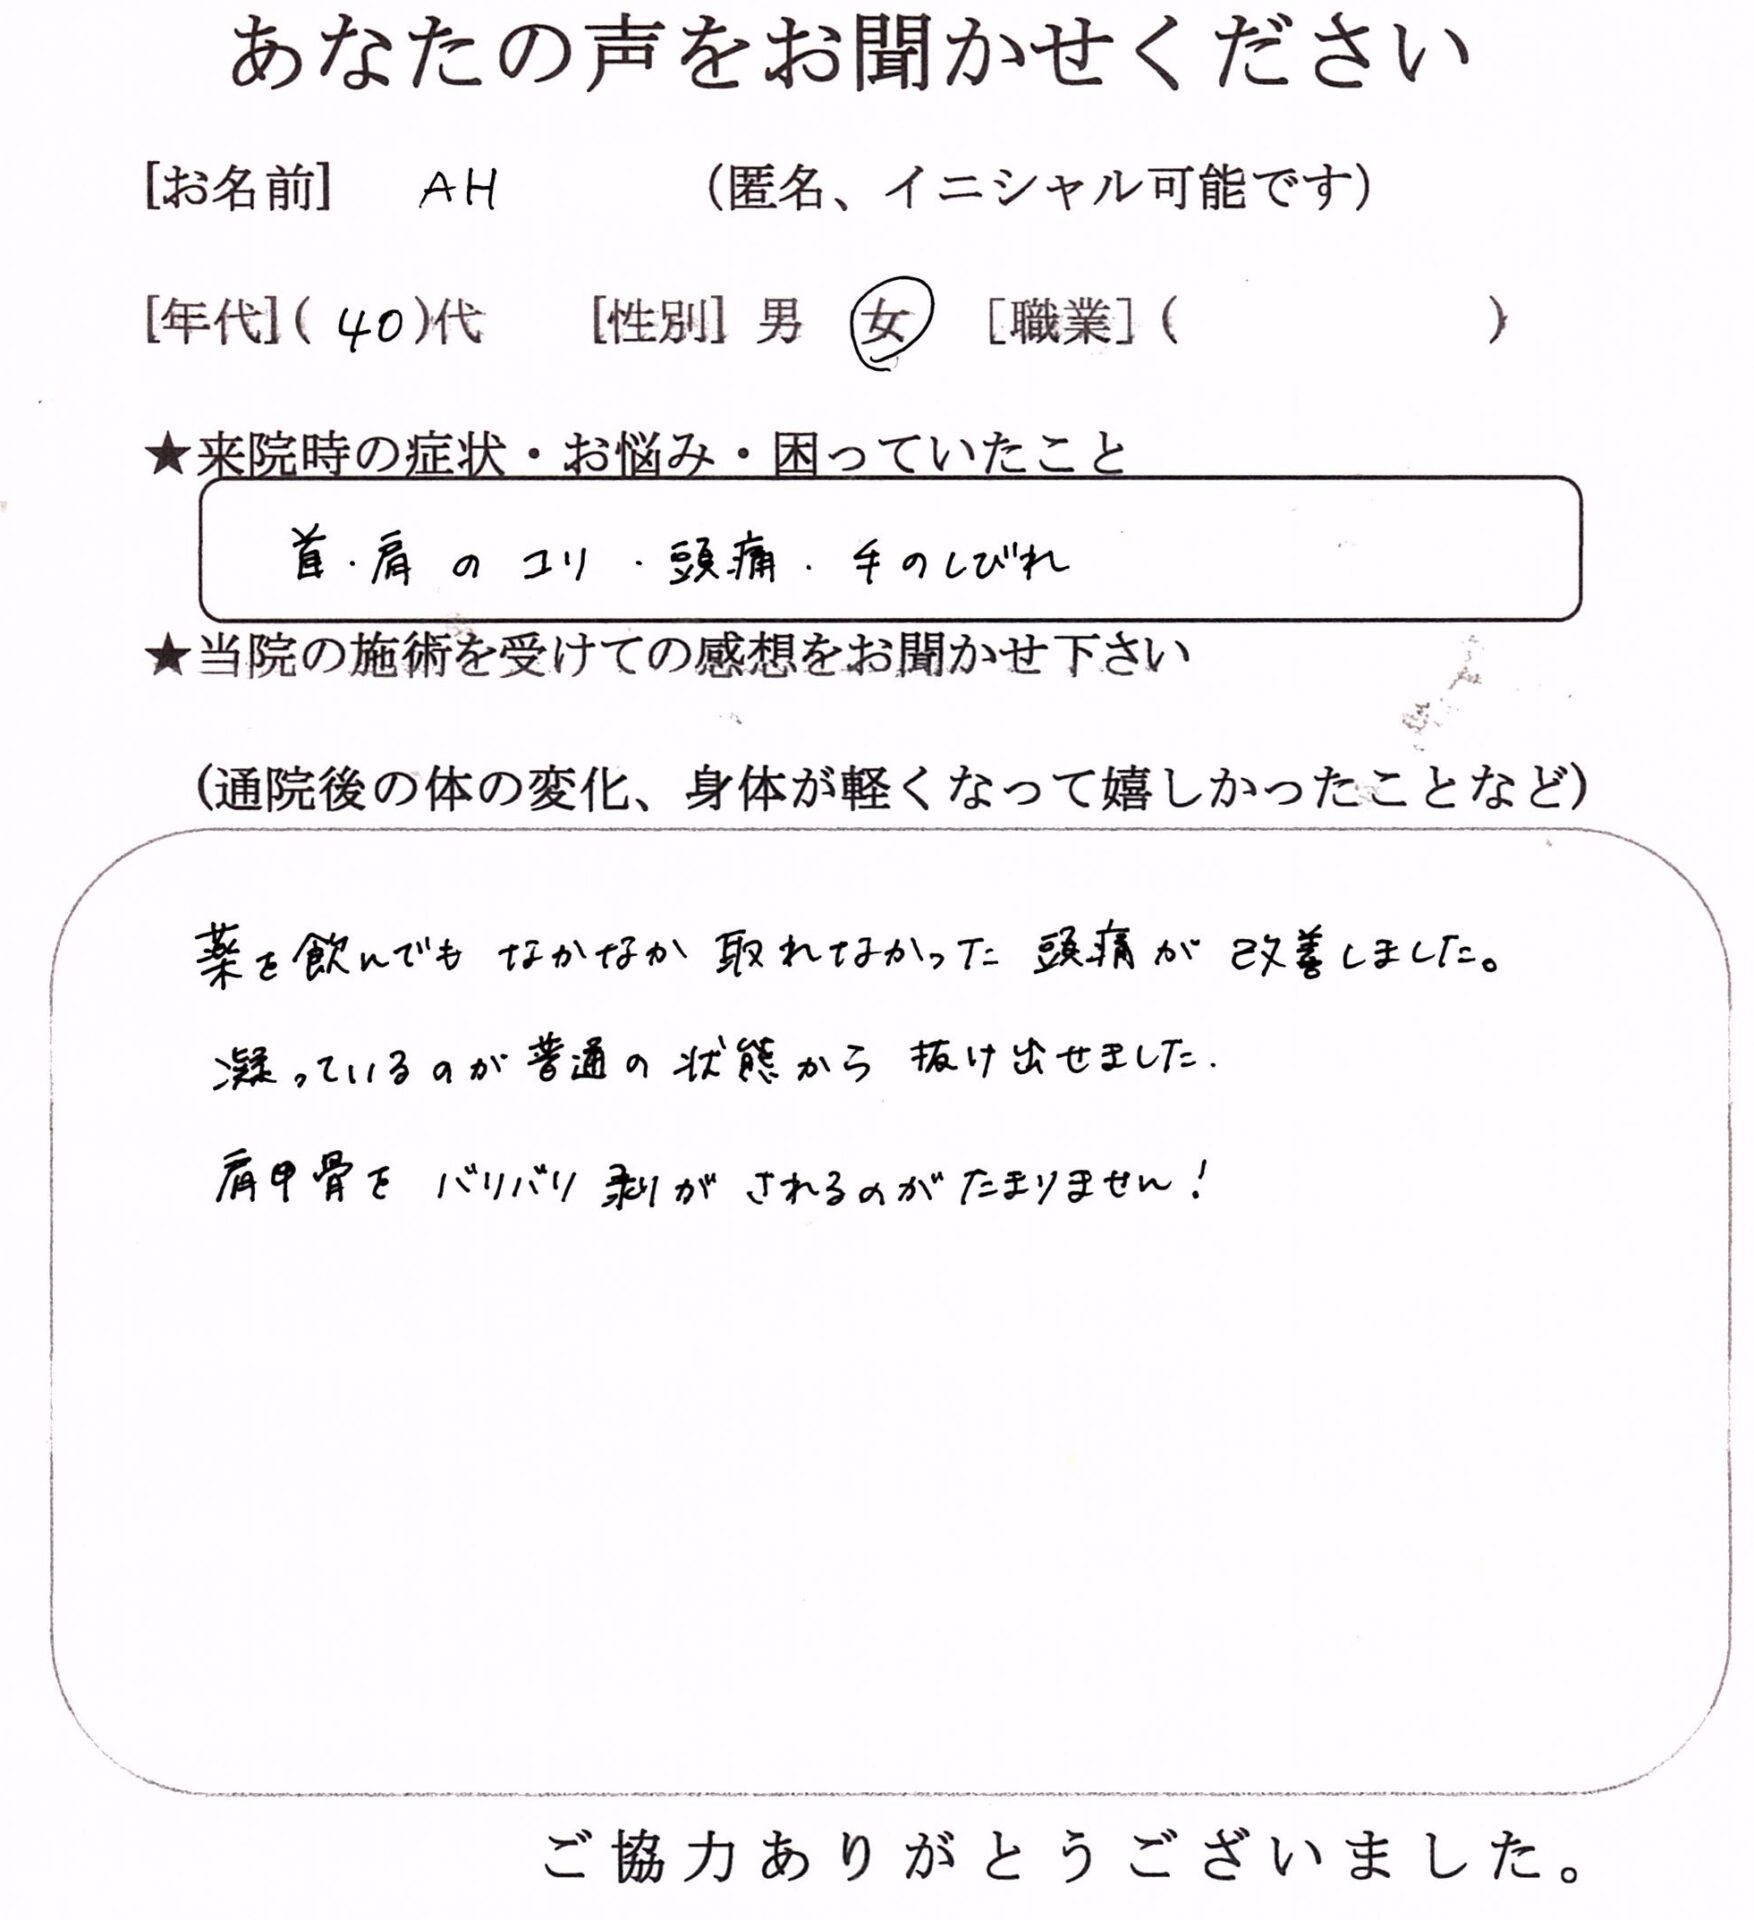 あなたの声をお聞かせください
[お名前] AH (匿名、イニシャル可能です)
[年代](40)代 [性別] 男 女 [職業]( )
★来院時の症状・お悩み・困っていたこと
首・肩のコリ・頭痛・手のしびれ
★当院の施術を受けての感想をお聞かせ下さい
(通院後の体の変化、身体が軽くなって嬉しかったことなど)
薬を飲んでもなかなか取れなかった頭痛が改善しました。
凝っているのが普通の状態から抜け出せました.
肩甲骨をバリバリ剥がされるのがたまりません!
ご協力ありがとうございました。